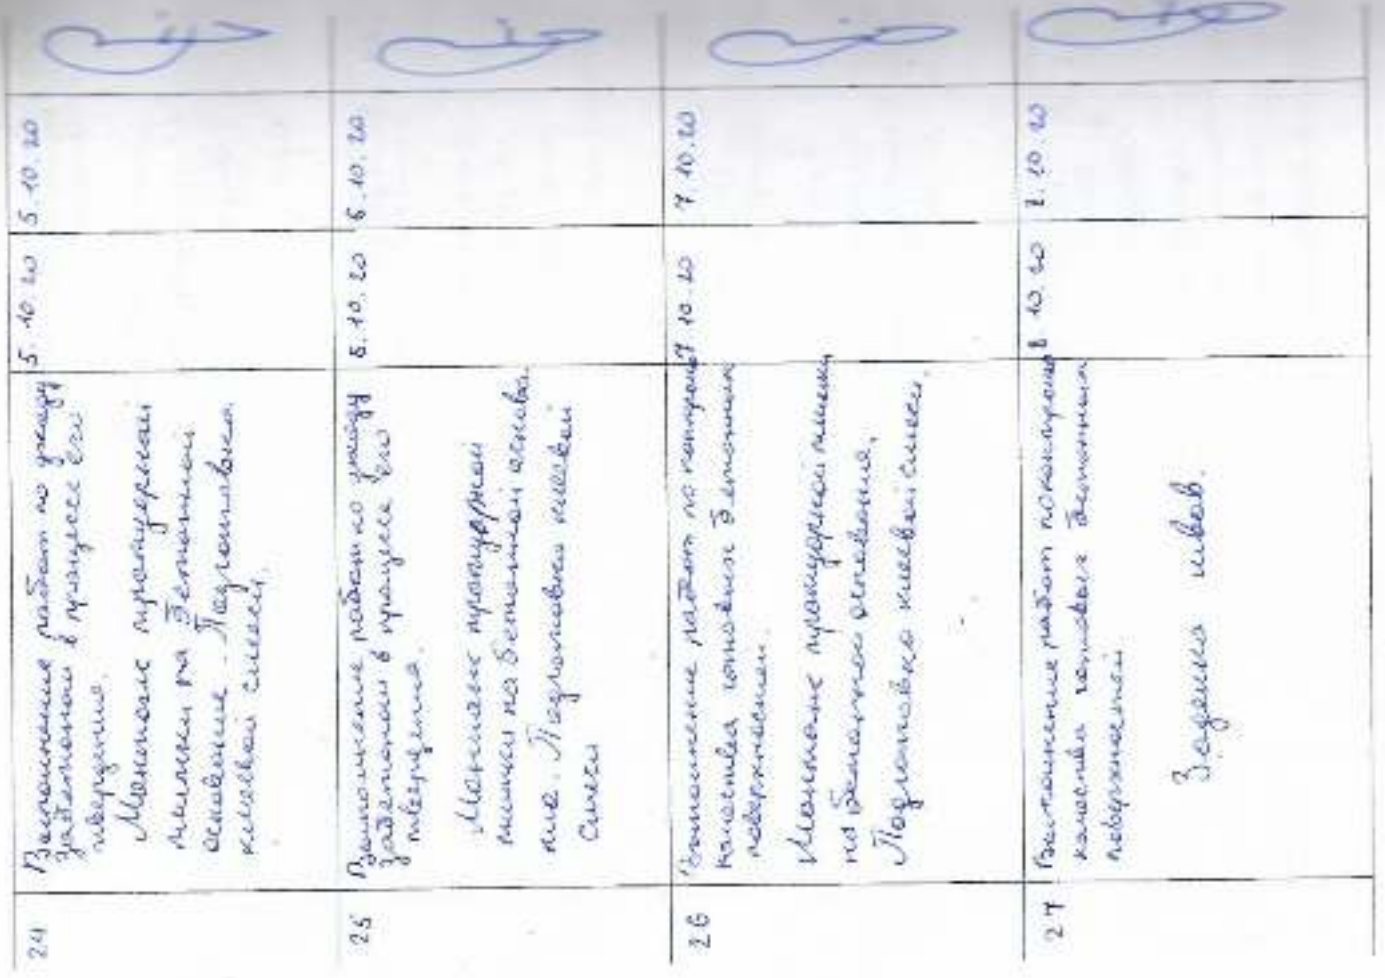 24
Выполнение работ по уходу
за бетоном в процессе его
твердения.
Монтаж тротуарной
плитки на бетонной
основание. Подготовка
клеевой смеси.
5. 10. 20
5. 10. 20
25
Выполнение работ по уходу
за бетоном в процессе его
твердения.
Монтаж тротуарной
плитки на бетонной основа
ние. Подготовка клеевой
смеси
6. 10. 20
6. 10. 20
26
Выполнение работ по контролю
качества готовых бетонных
поверхностей.
Монтаж тротуарной плитки
на бетонное основание.
Подготовка клеевой смеси.
7 10. 20
7. 10. 20
27
Выполнение работ по контролю
качества готовых бетонных
поверхностей
Заделка швов.
8. 10. 20
8. 10. 20